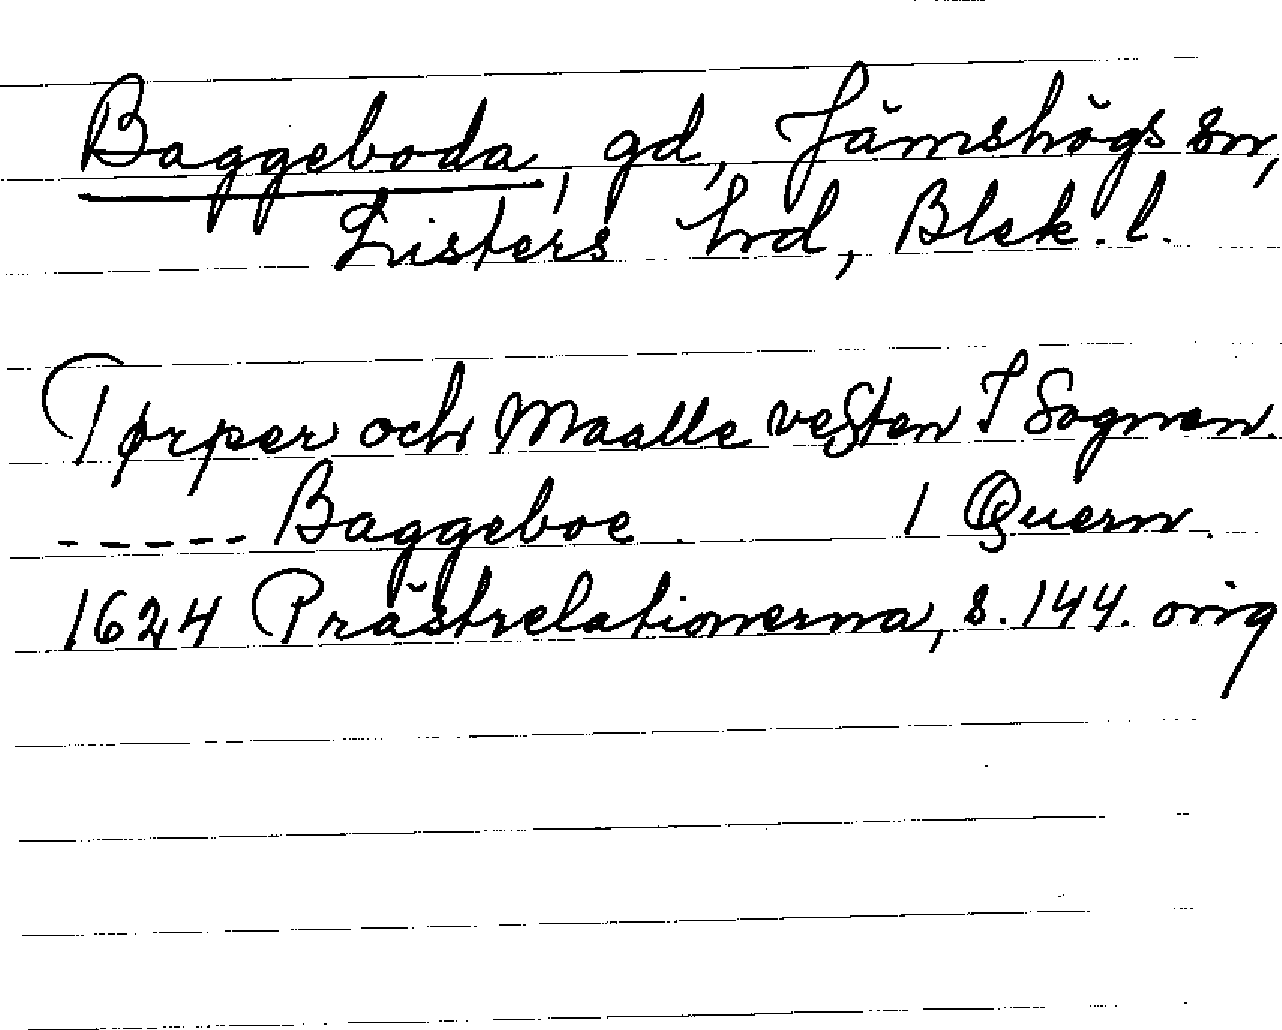 Baggeboda, gd, Jämshögs sn,
Listers hrd, Blek. l.
Tørper och Maalle vesten I Sognen.
----- Baggeboe. 1 Quern.
1624 Prästrelationerna, s. 144. orig